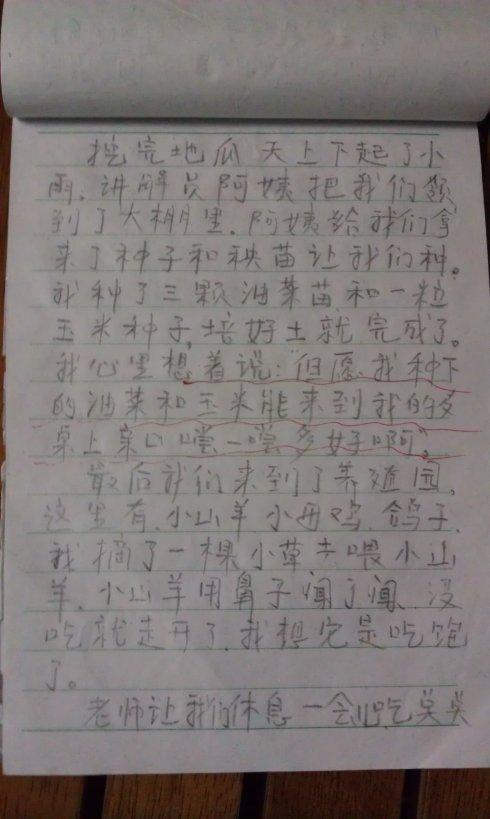 挖完地瓜 天上下起了小
雨,讲解员阿姨把我们领
到了大棚里,阿姨给我们拿
来了种子和秧苗让我们种。
我种了三颗油菜苗和一粒
玉米种子,培好土就完成了。
我心里想着说:“但愿我种下
的油菜和玉米能来到我的多
桌上亲口嚐一嚐多好啊”。
最后我们来到了养殖园,
这里有,小山羊小母鸡,鸽子,
我摘了一棵小草去喂小山
羊,小山羊用鼻子闻了闻,没
吃就走开了,我想它是吃饱
了。
老师让我们休息一会儿吃点